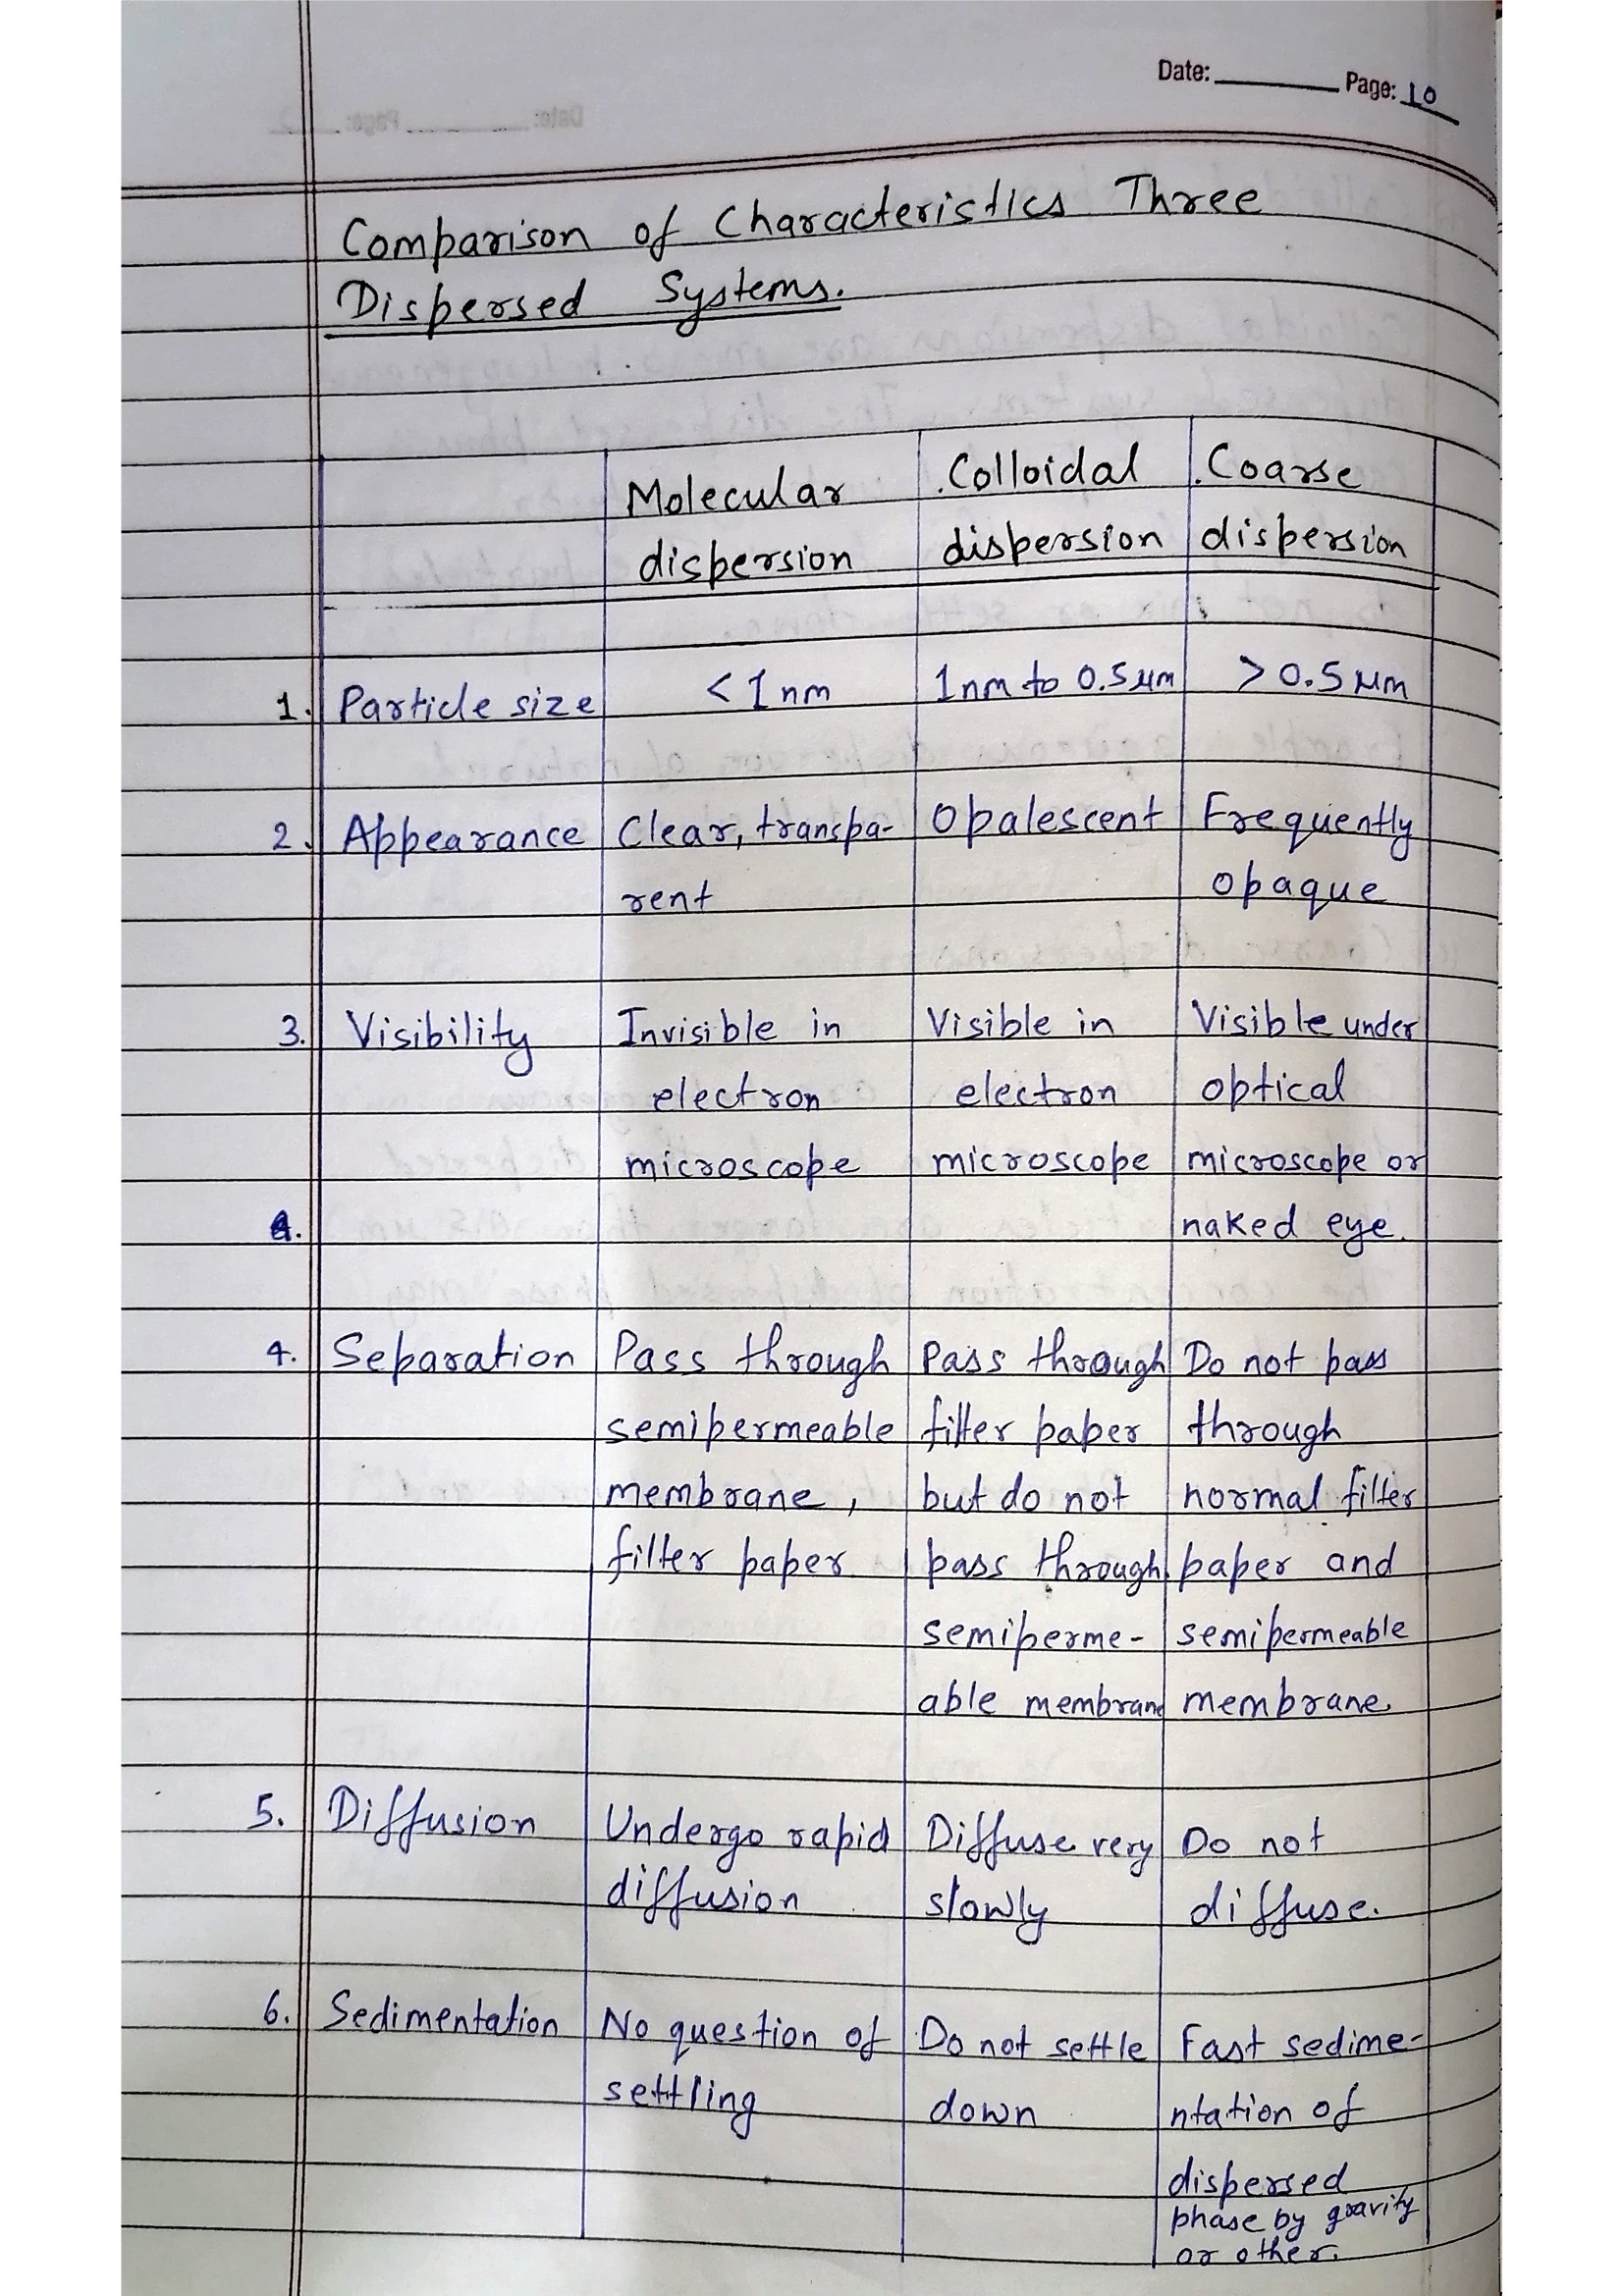 Date: Page: 10
Comparison of Characteristics Three
Dispersed Systems.
Molecular dispersion
Colloidal dispersion
Coarse dispersion
1. Particle size
< 1 nm
1 nm to 0.5 μm
> 0.5 μm
2. Appearance
Clear, transpa-
rent
Opalescent
Frequently
opaque
3. Visibility
Invisible in
electron
microscope
Visible in
electron
microscope
Visible under
optical
microscope or
naked eye.
4. Separation
Pass through
semipermeable
membrane,
filter paper
Pass through
filter paper
but do not
pass through
semiperme-
able membrane
Do not pass
through
normal filter
paper and
semipermeable
membrane
5. Diffusion
Undergo rapid
diffusion
Diffuse very
slowly
Do not
diffuse.
6. Sedimentation
No question of
settling
Do not settle
down
Fast sedime-
ntation of
dispersed
phase by gravity
or other.